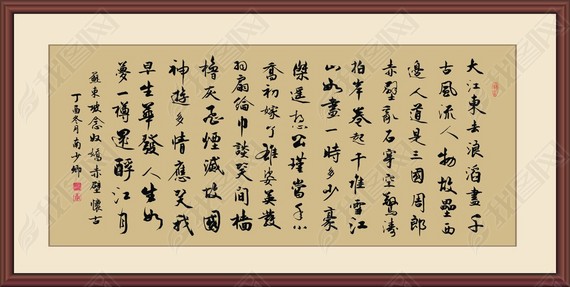 大江東去浪滔盡千
古風流人物故壘西
邊人道是三國周郎
赤壁亂石穿空驚濤
拍岸卷起千堆雪江
山如畫一時多少豪
傑遥想公瑾當年小
喬初嫁了雄姿英發
羽扇綸巾談笑間檣
櫓灰飛煙滅故國
神遊多情應笑我
早生華發人生如
夢一樽還酹江月
蘇東坡念奴嬌赤壁懷古
丁酉冬月南少卿